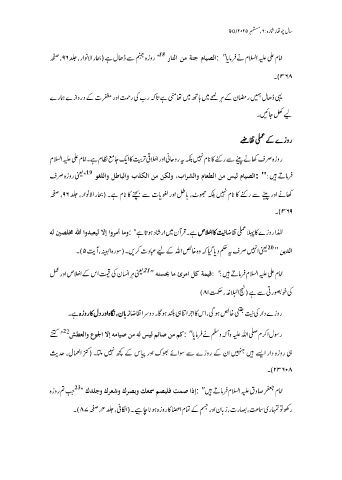 سال چو تھا، شمارہ: ۶، ستمبر ۲۰۲۵/۹۵
امام علی علیہ السلام نے فرمایا" :الصیام جنۃ من النار 18" روزہ جہنم سے ڈھال ہے (بحار الانوار، جلد ۹۶، صفحہ
۳۶۸)۔
یہی ڈھال ہمیں رمضان کے ہر لمحے میں ہاتھ میں تھامنی ہے تاکہ رب کی رحمت اور مغفرت کے دروازے ہمارے
لیے کھل جائیں۔
روزے کے عملی تقاضے
روزہ صرف کھانے پینے سے رکنے کا نام نہیں بلکہ یہ روحانی اور اخلاقی تربیت کا ایک جامع نظام ہے۔ امام علی علیہ السلام
فرماتے ہیں :"" الصیام لیس من الطعام والشراب، ولکن من الکذاب والباطل واللغو 19"یعنی روزہ صرف
کھانے اور پینے سے رکنے کا نام نہیں بلکہ جھوٹ، باطل اور لغویات سے بچنے کا نام ہے۔ (بحار الانوار، جلد ۹۶، صفحہ
۳۶۹)۔
لہٰذا روزے کا پہلا عملی تقاضا نیت کا اخلاص ہے۔ قرآن میں ارشاد ہوتا ہے" :وما أمروا إلا لیعبدوا الله مخلصین له
الدین "20یعنی انہیں صرف یہ حکم دیا گیا کہ وہ خالص اللہ کے لیے عبادت کریں۔ (سورہ البینہ، آیت ۵)۔
امام علی علیہ السلام فرماتے ہیں :" قیمة کل امرئ ما یحسنه "21یعنی ہر انسان کی قیمت اس کے اخلاص اور عمل
کی خوبصورتی سے ہے (نہج البلاغہ، حکمت ۸۱)
روزے دار کی نیت جتنی خالص ہو گی، اس کا اجر اتنا ہی بلند ہو گا۔ دوسرا تقاضا زبان، نگاہ اور دل کا روزہ ہے۔
رسول اکرم صلی اللہ علیہ وآلہ وسلم نے فرمایا" :کم من صائم لیس له من صیامه إلا الجوع والعطش22" کتنے
ہی روزہ دار ایسے ہیں جنہیں ان کے روزے سے سوائے بھوک اور پیاس کے کچھ نہیں ملتا۔ (کنز العمال، حدیث
۲۳۶۰۸)۔
امام جعفر صادق علیہ السلام فرماتے ہیں" :إذا صمت فلیصم سمعک وبصرک وشعرک وجلدک "23جب تم روزہ
رکھو تو تمہاری سماعت، بصارت، زبان اور جسم کے تمام اعضا کا روزہ ہونا چاہیے۔ (الکافی، جلد ۴، صفحہ ۸۷)۔